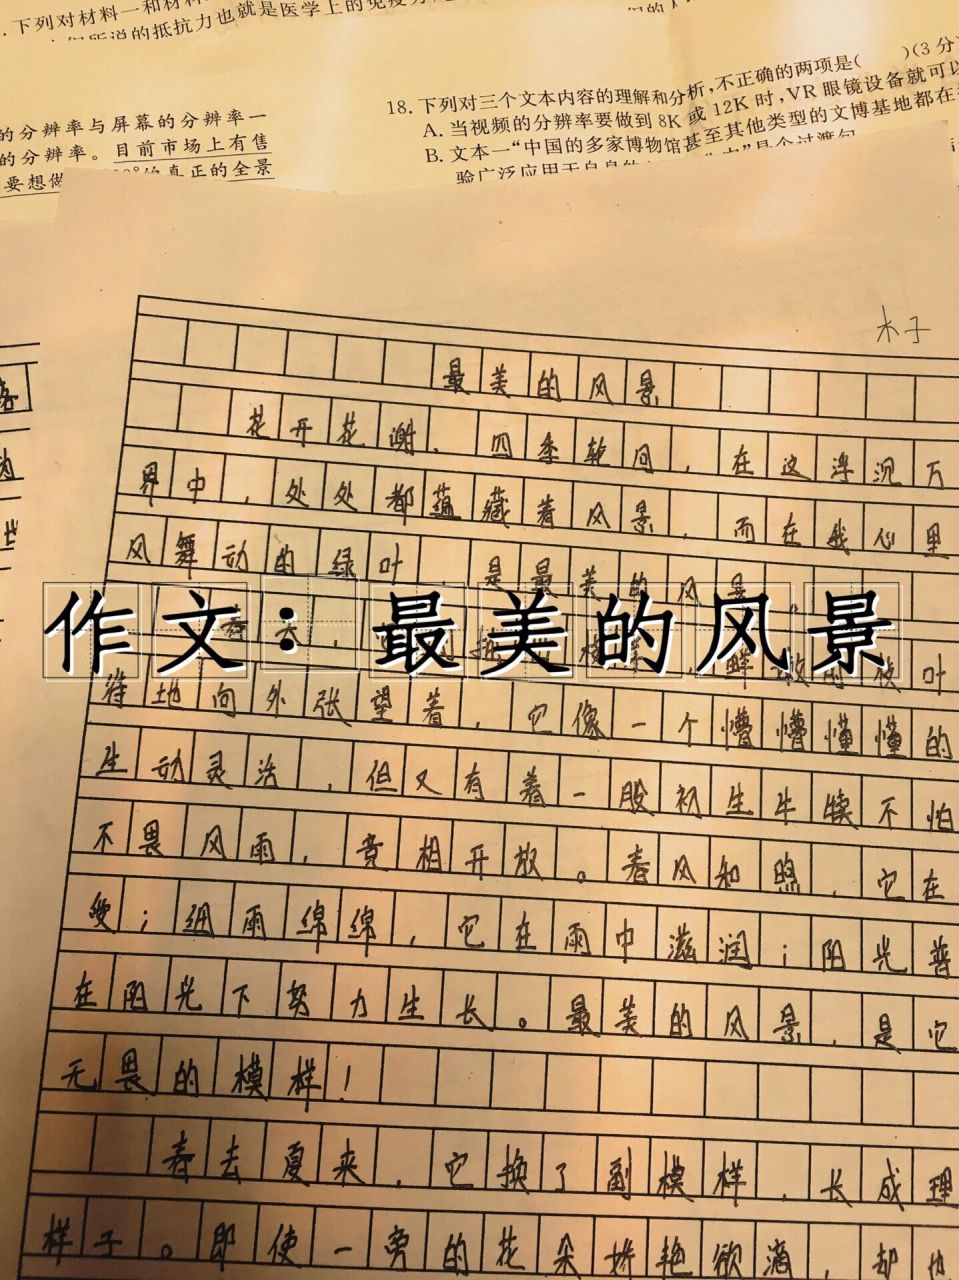 .下列对材料一和材料
们所说的抵抗力也就是医学上的免疫力
的分辨率与屏幕的分辨率一
的分辨率。目前市场上有售
要想做
的真正的全景
18.下列对三个文本内容的理解和分析,不正确的两项是( )(3分)
A.当视频的分辨率要做到8K或12K时,VR眼镜设备就可以
B.文本一“中国的多家博物馆甚至其他类型的文博基地都在
验广泛应用于自身的
是个过渡句
木子
最美的风景
花开花谢,四季轮回,在这浮沉万
界中,处处都蕴藏着风景,而在我心里
风舞动的绿叶,是最美的风景。
作文:最美的风景
待地向外张望着,它像一个懵懵懂懂的
生动灵活,但又有着一股初生牛犊不怕
不畏风雨,竞相开放。春风和煦,它在
受;细雨绵绵,它在雨中滋润;阳光普
在阳光下努力生长。最美的风景,是它
无畏的模样!
春去夏来,它换了副模样,长成理
样子。即使一旁的花朵娇艳欲滴,却也